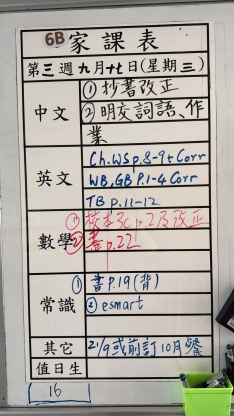 6B 家課表
第三週九月十七日(星期三)
中文 ①抄書改正
②明交詞語、作
業
英文 Ch.WS p.8-9+Corr
WB,GB P.1-4 Corr
TB p.11-12
數學 ① 3C p.2及改正
②書p.22
常識 ①書P.19(背)
②esmart
其它 21/9或前訂10月餐
值日生
16